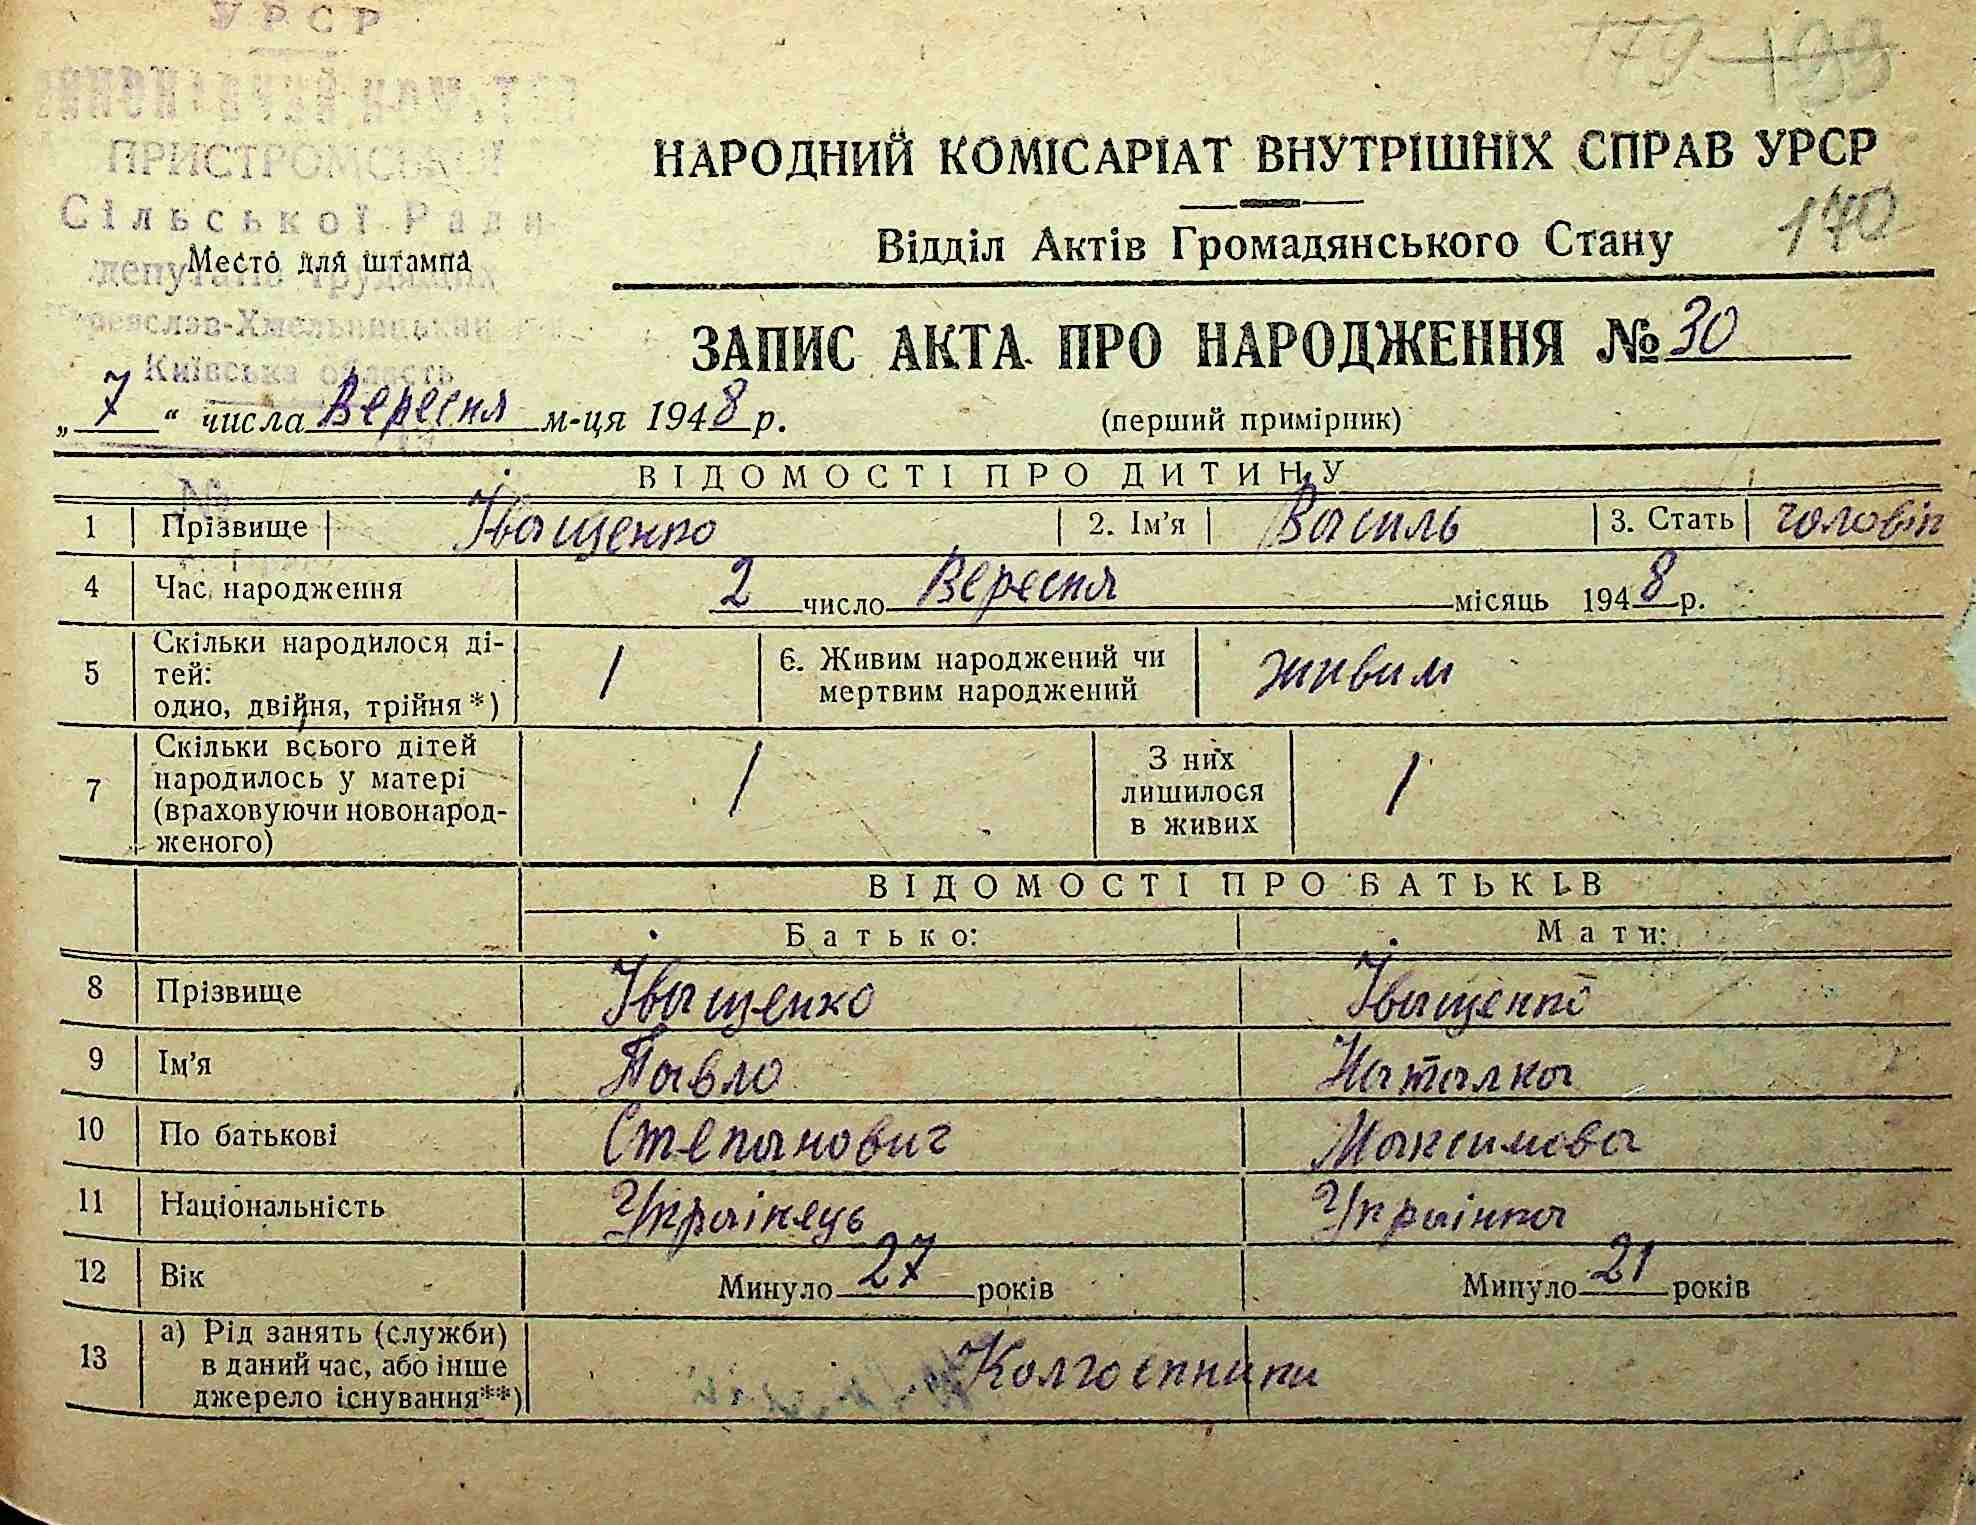 УРСР
ПРИСТРОМСЬКОЇ
Сільської Ради
депутатів трудящих
Київська область
Место для штампа
179 199
НАРОДНИЙ КОМІСАРІАТ ВНУТРІШНІХ СПРАВ УРСР
140
Відділ Актів Громадянського Стану
ЗАПИС АКТА ПРО НАРОДЖЕННЯ № 30
„ 7 “ числа Вересня м-ця 1948 р.
(перший примірник)
ВІДОМОСТІ ПРО ДИТИНУ
№
1 Прізвище Іващенко 2. Ім’я Василь 3. Стать чоловіч
4 Час народження 2 число Вересня місяць 1948 р.
5 Скільки народилося ді-
тей:
одно, двійня, трійня*) 1 6. Живим народжений чи
мертвим народжений живим
7 Скільки всього дітей
народилось у матері
(враховуючи новонарод-
женого) 1 З них
лишилося
в живих 1
ВІДОМОСТІ ПРО БАТЬКІВ
Батько: Мати:
8 Прізвище Іващенко Іващенко
9 Ім’я Павло Наталка
10 По батькові Степанович Максимова
11 Національність Українець Українка
12 Вік Минуло 27 років Минуло 21 років
13 а) Рід занять (служби)
в даний час, або інше
джерело існування**) Колгоспники